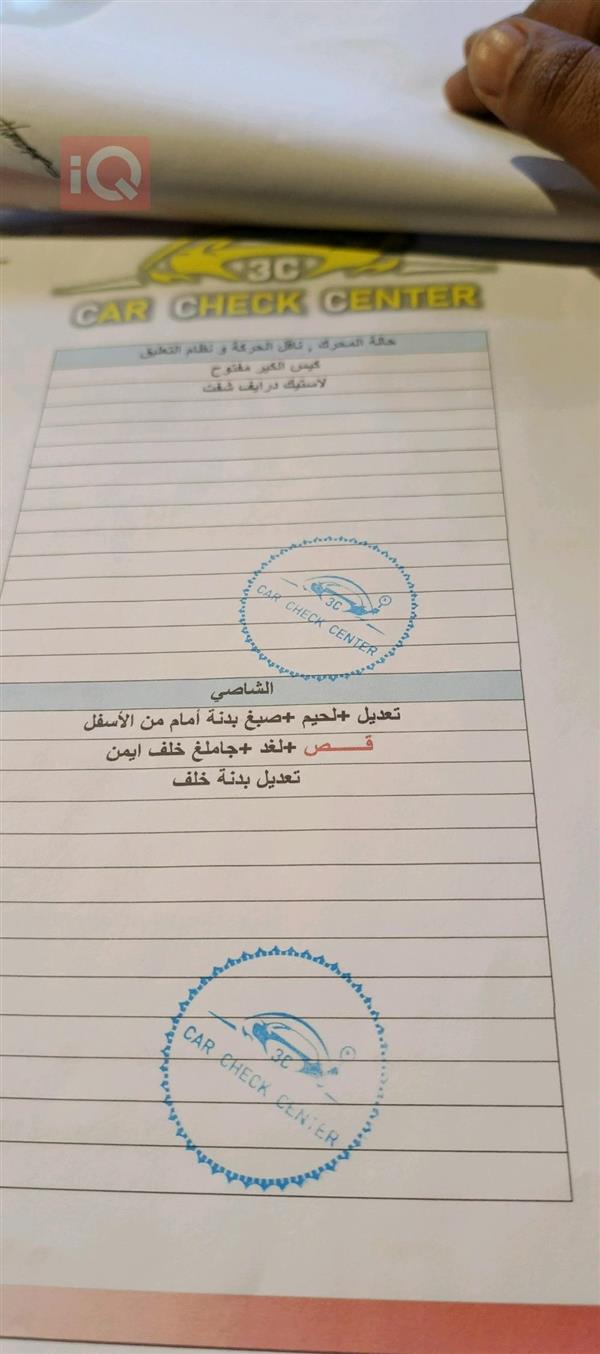 iQ
3C
CAR CHECK CENTER
حالة المحرك , ناقل الحركة و نظام التعليق
كيس الكير مفتوح
لاستيك درايف شفت
3C
CAR CHECK CENTER
الشاصي
تعديل +لحيم +صبغ بدنة أمام من الأسفل
قـــــص +لغد +جاملغ خلف ايمن
تعديل بدنة خلف
3C
CAR CHECK CENTER